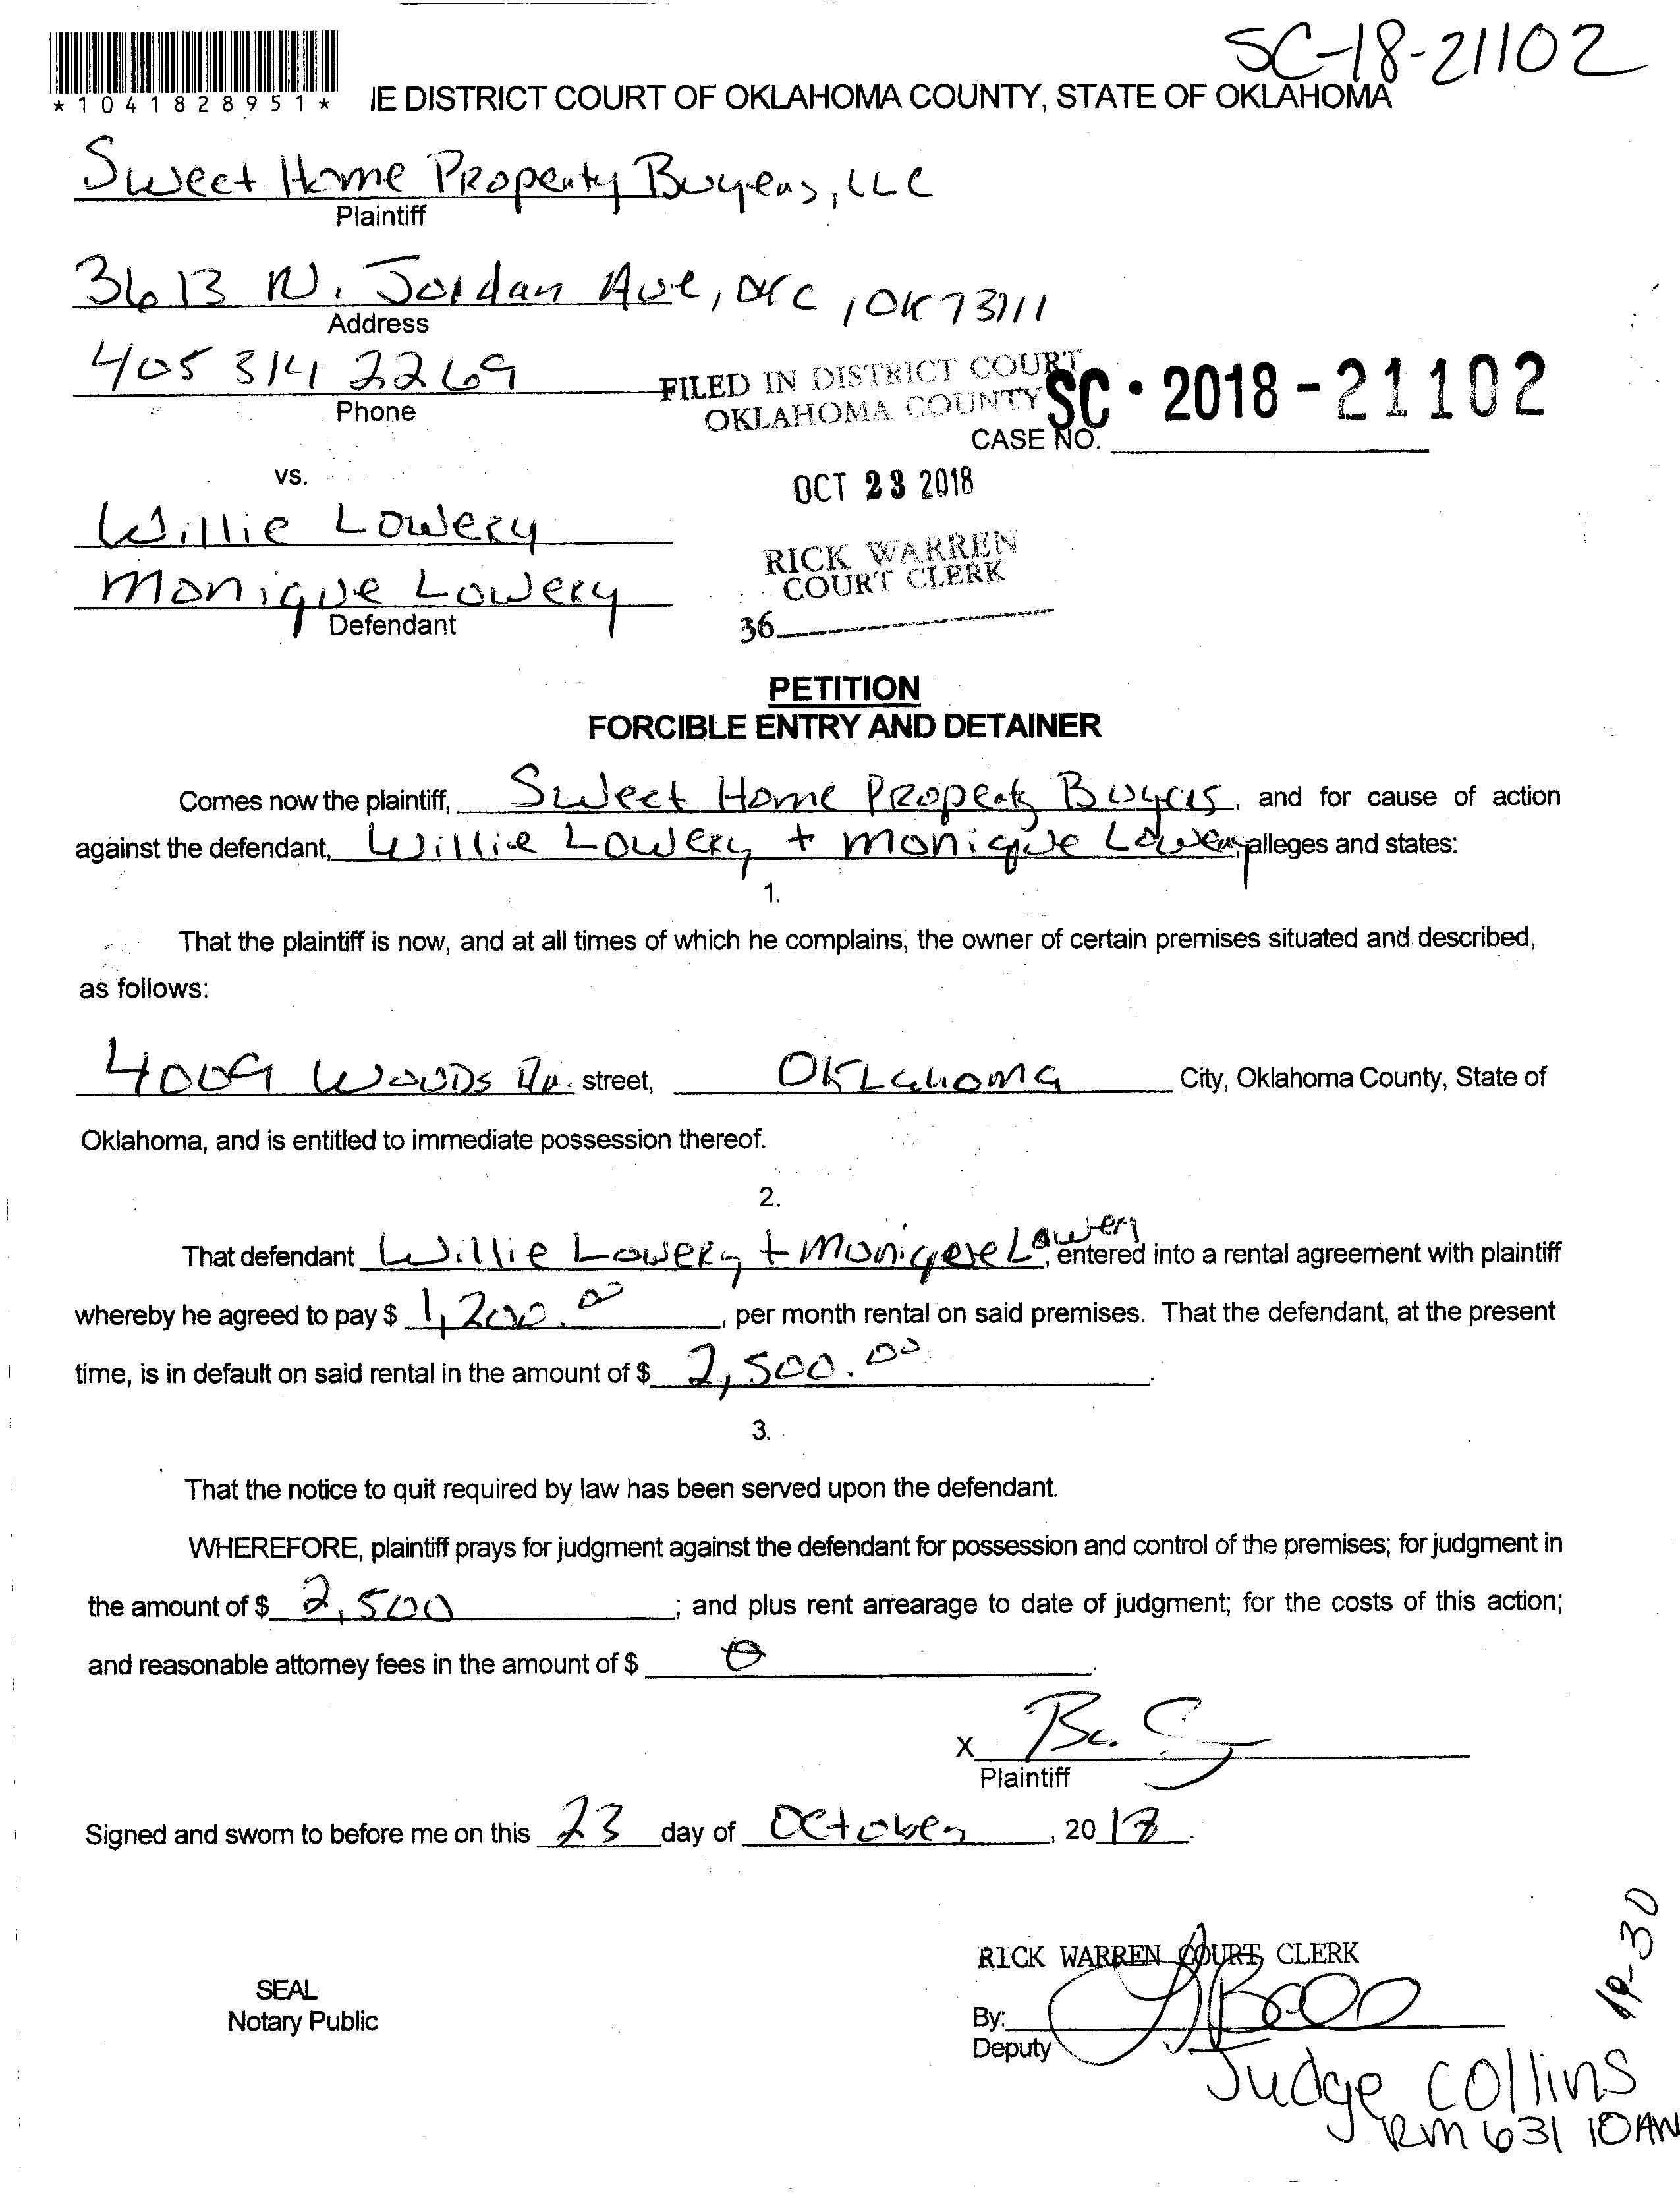 SC-18-21102
*1041828951* IE DISTRICT COURT OF OKLAHOMA COUNTY, STATE OF OKLAHOMA
Sweet Home Property Buyers, LLC
Plaintiff
3613 N. Jordan Ave, OKC, OK 73111
Address
405 314 2269
Phone
FILED IN DISTRICT COURT
OKLAHOMA COUNTY
SC • 2018-21102
CASE NO.
vs.
OCT 23 2018
Willie Lowery
RICK WARREN
COURT CLERK
Monique Lowery
Defendant
36
PETITION
FORCIBLE ENTRY AND DETAINER
Comes now the plaintiff, Sweet Home Property Buyers, and for cause of action
against the defendant, Willie Lowery + Monique Lowery, alleges and states:
1.
That the plaintiff is now, and at all times of which he complains, the owner of certain premises situated and described,
as follows:
4009 Woods Dr. street, Oklahoma City, Oklahoma County, State of
Oklahoma, and is entitled to immediate possession thereof.
2.
That defendant Willie Lowery + Monique Lowery, entered into a rental agreement with plaintiff
whereby he agreed to pay $ 1,200.00, per month rental on said premises. That the defendant, at the present
time, is in default on said rental in the amount of $ 2,500.00.
3.
That the notice to quit required by law has been served upon the defendant.
WHEREFORE, plaintiff prays for judgment against the defendant for possession and control of the premises; for judgment in
the amount of $ 2,500; and plus rent arrearage to date of judgment; for the costs of this action;
and reasonable attorney fees in the amount of $ 0.
X
Plaintiff
Signed and sworn to before me on this 23 day of October, 2018.
RICK WARREN COURT CLERK
SEAL
Notary Public
By:
Deputy
Judge Collins
RM 631 10AM